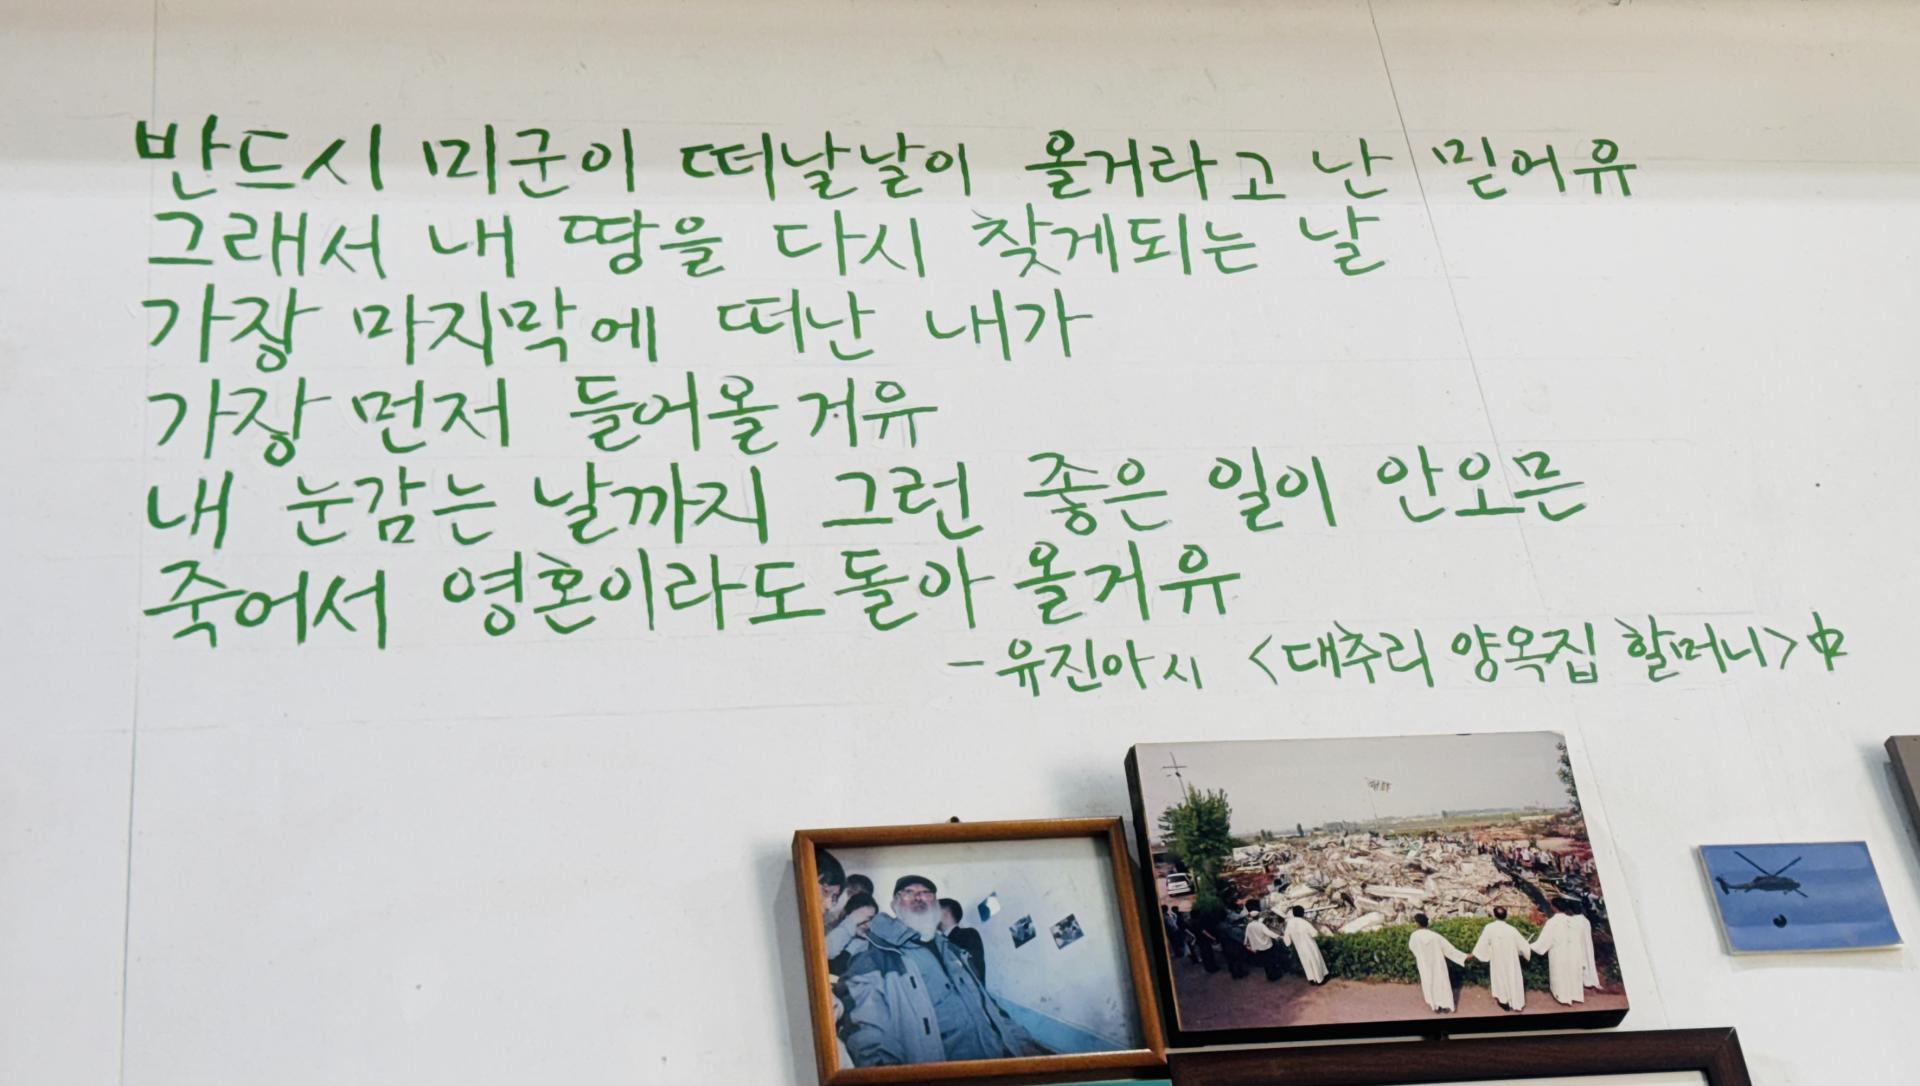 반드시 미군이 떠날날이 올거라고 난 믿어유
그래서 내 땅을 다시 찾게되는 날
가장 마지막에 떠난 내가
가장 먼저 들어올거유
내 눈감는 날까지 그런 좋은 일이 안오믄
죽어서 영혼이라도 돌아 올거유
-유진아 시 <대추리 양옥집 할머니> 中